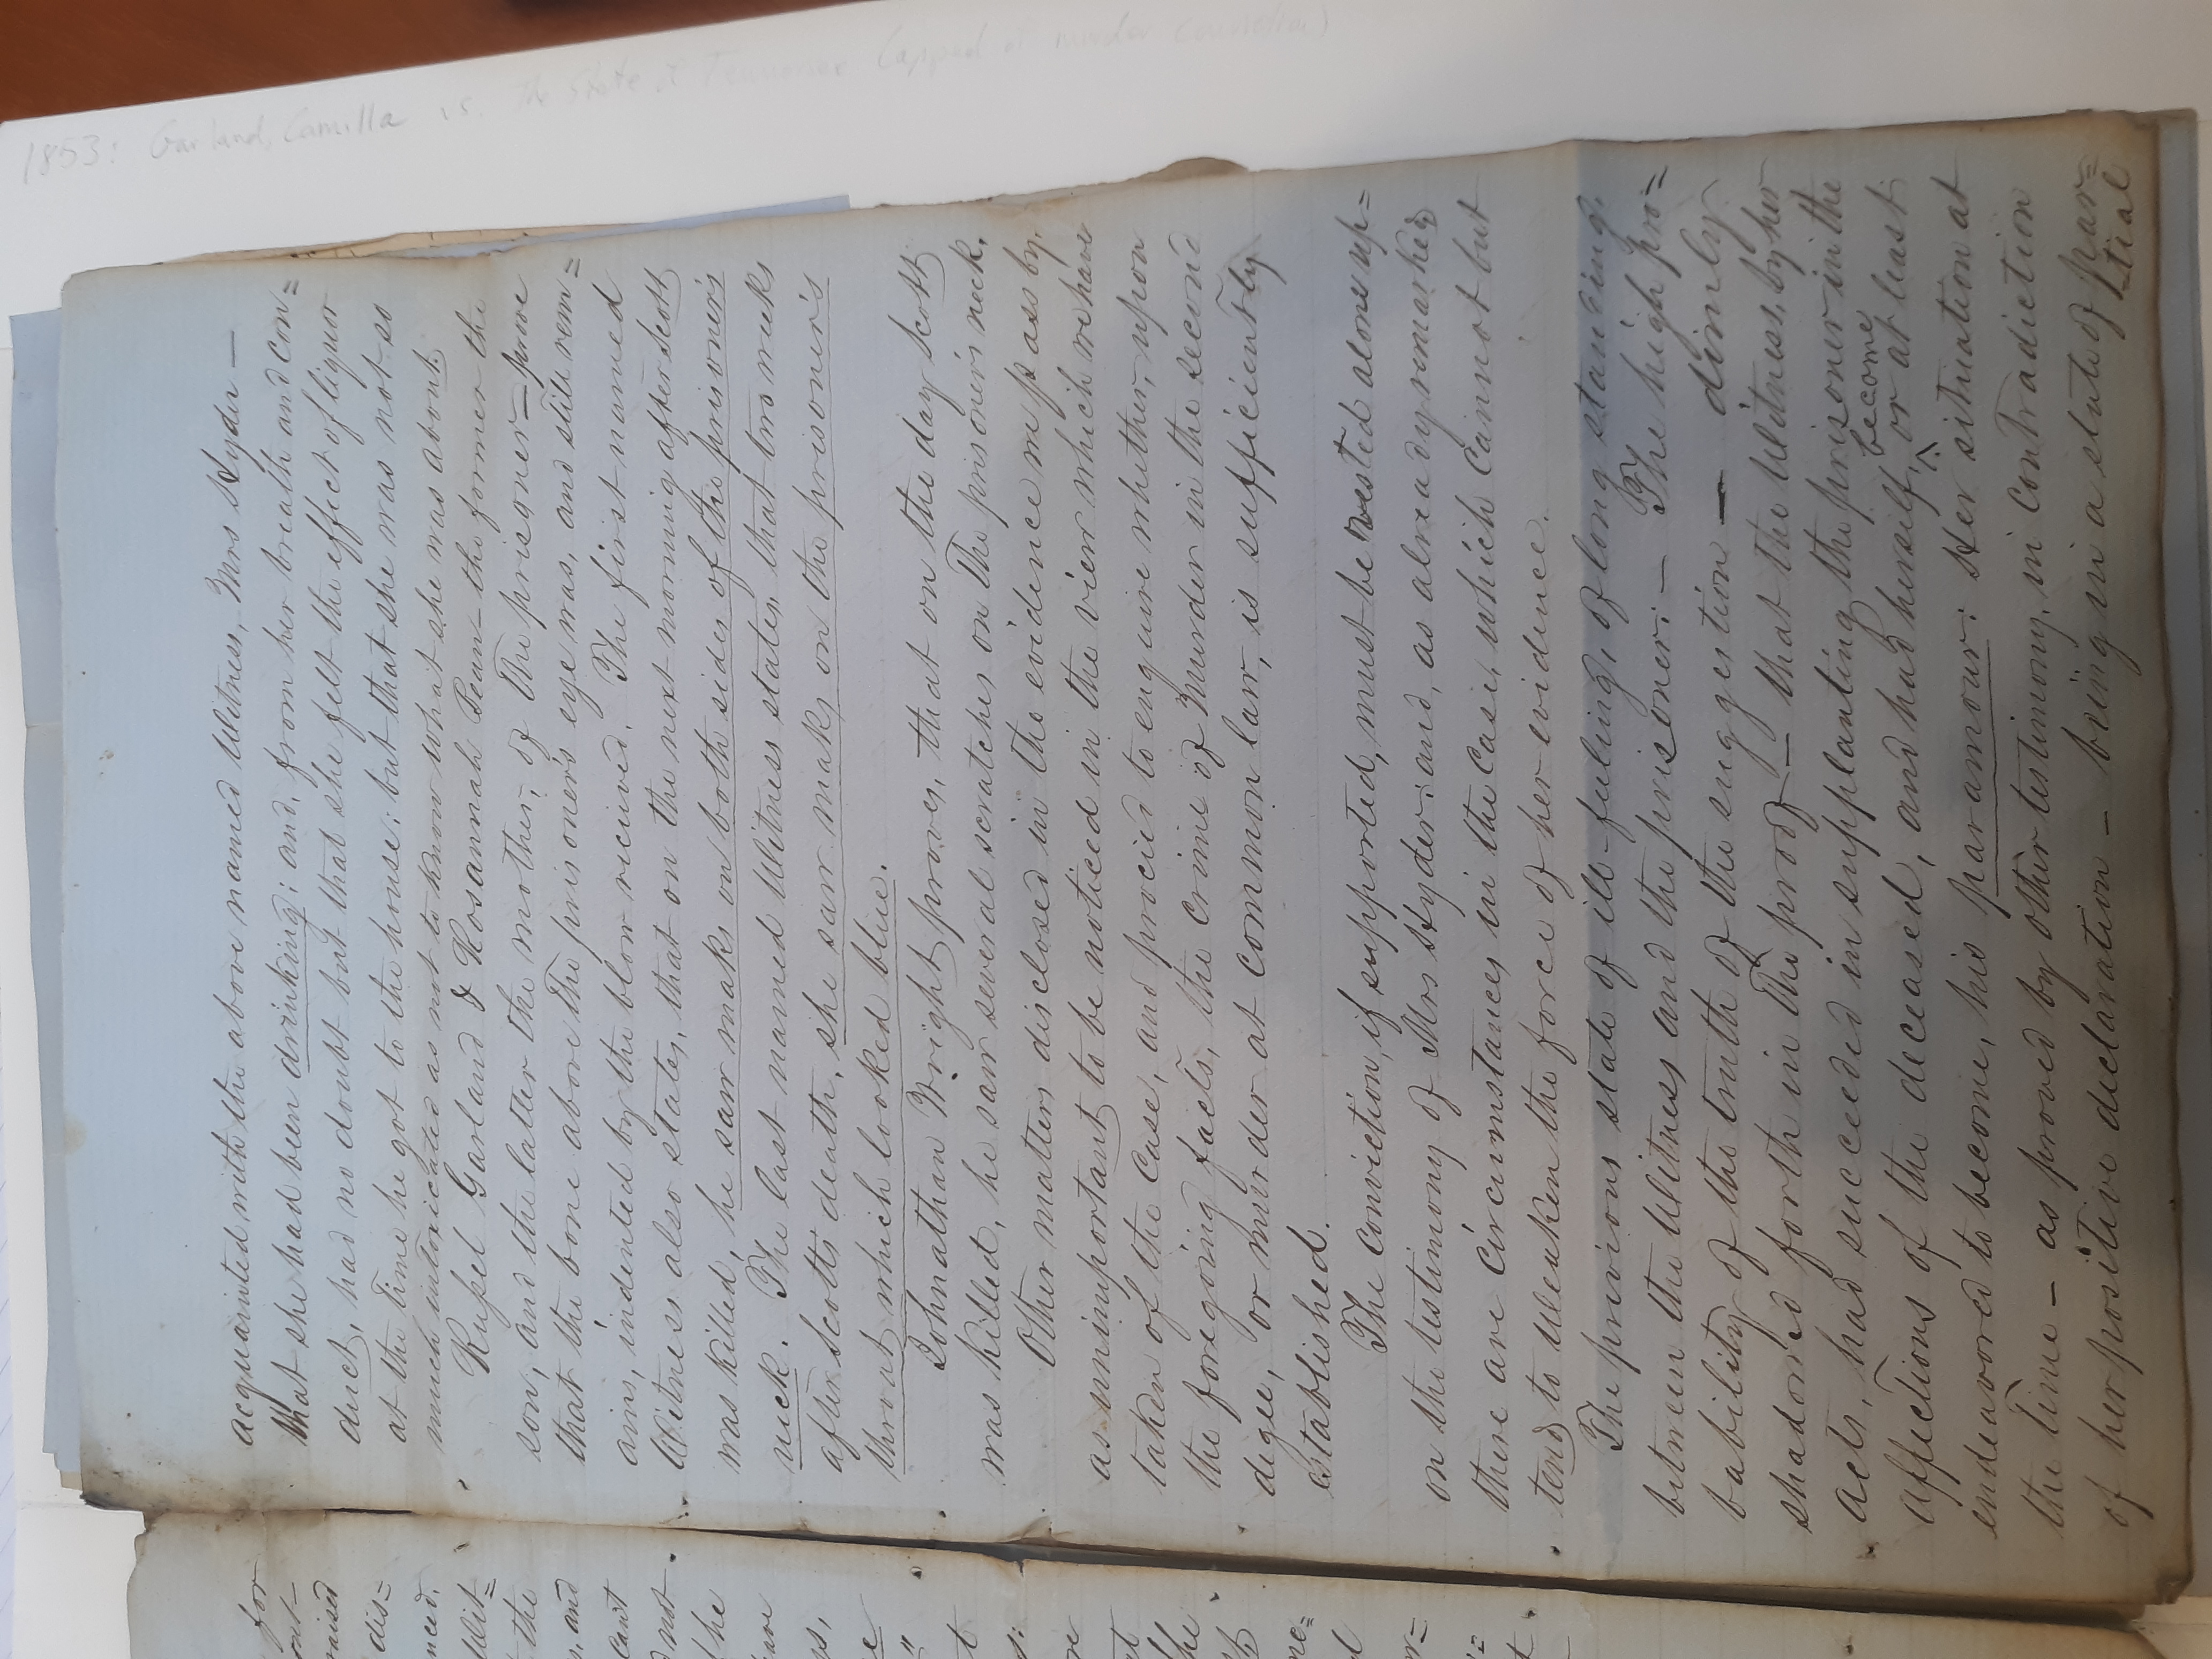 for
raised
dis=
Wit=
the
and
can't
not
he
the
acquainted with the above named Witness, Mrs Hyder —
that she had been drinking: and, from her breath and con=
duct, had no doubt but that she felt the effect of liquor
at the time he got to the house: but that she was not so
much intoxicated as not to know what she was about.
Rußel Garland & Rosannah Bean — the former the
son, and the latter the mother, of the prisoner — prove
that the bone above the prisoner's eye was, and still rem=
ains, indented by the blow recieved. The first named
Witness also states, that on the next morning after Scott
was killed, he saw maks on both sides of the prisoner's
neck. The last named Witness states, that two weeks
after Scotts death, she saw maks on the prisoner's
throat which looked blue.
Johnathan Wright proves, that on the day Scott
was killed, he saw several scratches on the prisoner's neck.
Other matters disclosed in the evidence we pass by,
as unimportant to be noticed in the view which we have
taken of the Case, and procied to enquire whether, upon
the foregoing facts, the crime of Murder in the second
degee, or murder at common law, is sufficiently
established.
The conviction, if supported, must be rested alone up=
on the testimony of Mrs Hyder: and, as already remarked,
there are circumstances in the Case, which cannot but
tend to weaken the force of her evidence.
The previous state of ill-feeling, of long standing,
between the Witness and the prisoner: — The high pro=
bability of the truth of the suggestion — dimly
shadowed forth in the proof — that the Witness, by her
acts, had succeeded in supplanting the prisoner in the
become
affections of the deceased, and had herself, ^ or at least
endeavored to become, his paramour: Her situation at
the time — as proved by other testimony, in contradiction
of her positive declaration — being in a state of par=
-tial
1853: Garland, Camilla vs. the State